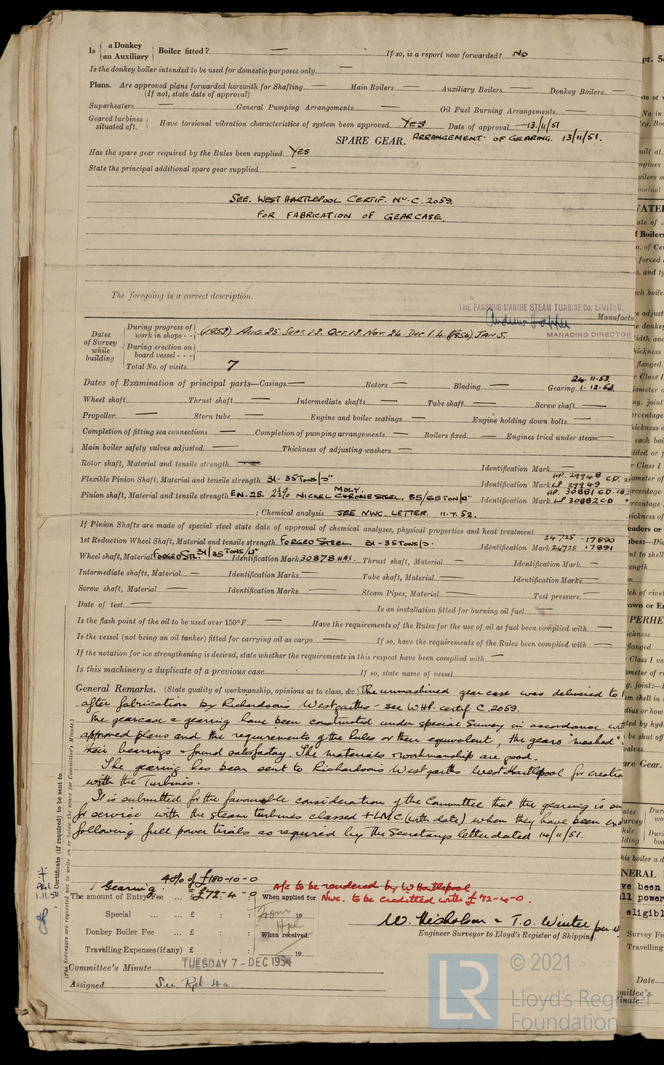 Is { a Donkey / an Auxiliary } Boiler fitted? — If so, is a report now forwarded? NO
Is the donkey boiler intended to be used for domestic purposes only —
Plans. Are approved plans forwarded herewith for Shafting — Main Boilers — Auxiliary Boilers — Donkey Boilers —
(If not, state date of approval)
Superheaters — General Pumping Arrangements — Oil Fuel Burning Arrangements —
Geared turbines situated aft. } Have torsional vibration characteristics of system been approved YES Date of approval 13/11/51
ARRANGEMENT OF GEARING. 13/11/51.
SPARE GEAR.
Has the spare gear required by the Rules been supplied YES
State the principal additional spare gear supplied -
SEE. WEST HARTLEPOOL CERTIF. No. C. 2059.
FOR FABRICATION OF GEARCASE.
The foregoing is a correct description.
THE PARSONS MARINE STEAM TURBINE CO. LIMITED.
Manufactu
MANAGING DIRECTOR
Dates of Survey while building
During progress of work in shops - - } (1953) AUG. 25. Sept. 18. OCT. 13. NOV. 24. DEC 1.4. (1954) JAN 5.
During erection on board vessel - - - }
Total No. of visits 7
24-11-53.
Dates of Examination of principal parts—Casings — Rotors — Blading — Gearing 1-12-53
Wheel shaft — Thrust shaft — Intermediate shafts — Tube shaft — Screw shaft —
Propeller — Stern tube — Engine and boiler seatings — Engine holding down bolts —
Completion of fitting sea connections — Completion of pumping arrangements — Boilers fixed — Engines tried under steam —
Main boiler safety valves adjusted — Thickness of adjusting washers —
Rotor shaft, Material and tensile strength — Identification Mark —
HP. 29948 CD.
Flexible Pinion Shaft, Material and tensile strength 31-35 TONS/□" Identification Mark LP 29949
MOLY. HP. 30881 CD.
Pinion shaft, Material and tensile strength EN. 25. 2½% NICKEL CHROME STEEL. 55/65 TON/□" Identification Mark LP 30882 CD
; Chemical analysis SEE NWC. LETTER. 11.7.52.
If Pinion Shafts are made of special steel state date of approval of chemical analyses, physical properties and heat treatment
24725 - 17890
1st Reduction Wheel Shaft, Material and tensile strength FORGED STEEL 31-35 TONS/□". Identification Mark 24725 17891
Wheel shaft, Material FORGED STL. 31/35 TONS/□" Identification Mark 30878 Thrust shaft, Material — Identification Mark —
Intermediate shafts, Material — Identification Marks — Tube shaft, Material — Identification Marks —
Screw shaft, Material — Identification Marks — Steam Pipes, Material — Test pressure —
Date of test — Is an installation fitted for burning oil fuel —
Is the flash point of the oil to be used over 150°F — Have the requirements of the Rules for the use of oil as fuel been complied with —
Is the vessel (not being an oil tanker) fitted for carrying oil as cargo — If so, have the requirements of the Rules been complied with —
If the notation for ice strengthening is desired, state whether the requirements in this respect have been complied with —
Is this machinery a duplicate of a previous case — If so, state name of vessel —
General Remarks. (State quality of workmanship, opinions as to class, &c.) The unmachined gearcase was delivered to
after fabrication by Richardsons Westgarths - see WHP. certif C. 2059.
The gearcase & gearing have been constructed under special Survey in accordance with
approved plans and the requirements of the Rules or their equivalent, the gears "meshed"
their bearings & found satisfactory. The materials & workmanship are good.
The gearing has been sent to Richardsons Westgarths West Hartlepool for erection
with the Turbines.
It is submitted for the favourable consideration of the Committee that the gearing is
for service with the steam turbines classed + LMC (with date) when they have been
following full power trials as required by the Secretarys letter dated 14/11/51.
Certificate (if required) to be sent to
(The Surveyors are requested not to write on or below the space for Committee's Minute.)
40% of £180-10-0
Gearing
The amount of Entry Fee ... = £72-4-0 When applied for
A/c to be rendered by W Hartlepool
Nwc. to be credited with £72-4-0.
Special ... ... £ : : 19
Donkey Boiler Fee ... £ : : When received,
Travelling Expenses (if any) £ : : 19
From Hpl
W. Nicholson & T.O. Winter
Engineer Surveyor to Lloyd's Register of Shipping.
Committee's Minute TUESDAY 7 - DEC 1954
Assigned See Rpt. 4a.
LR
© 2021
Lloyd's Register
Foundation